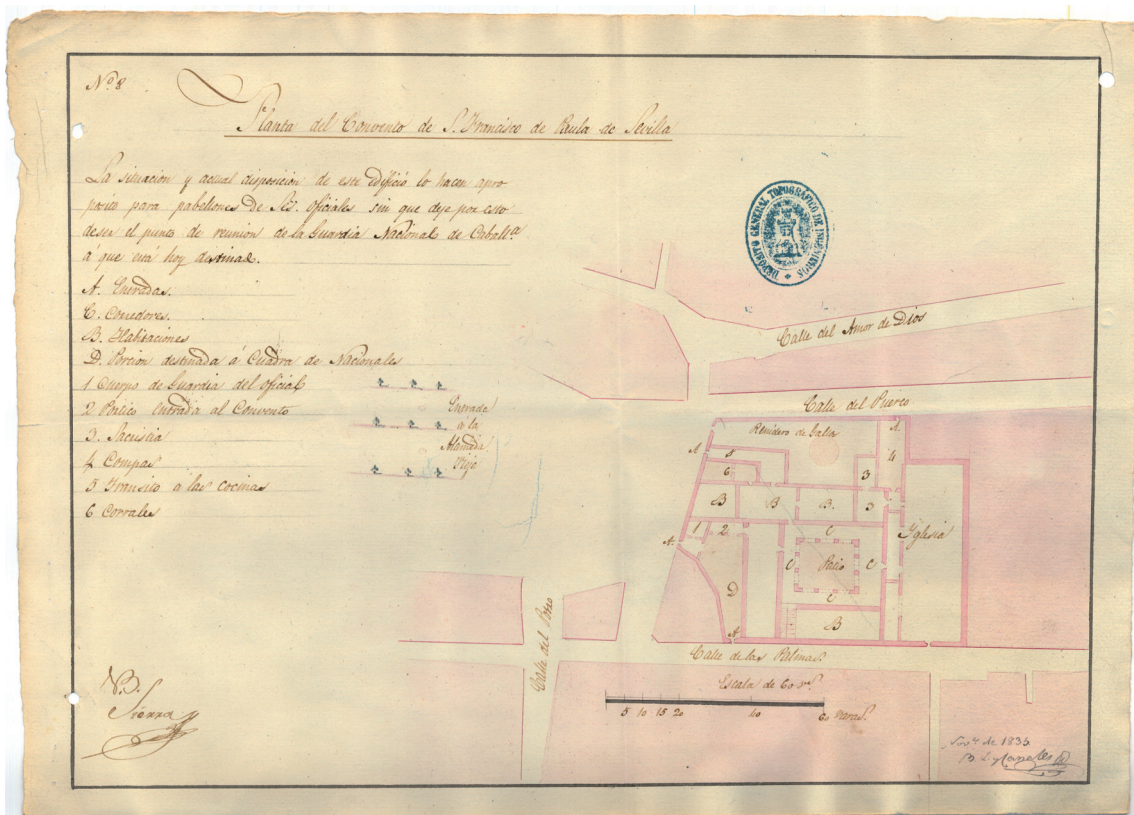 Nº 8
Planta del Convento de S. Francisco de Paula de Sevilla
La situacion y actual disposicion de este edificio lo hacen apro
posito para pabellones de Sres. oficiales sin que deje por esto
de ser el punto de reunion de la Guardia Nacional de Caball.ª
á que está hoy destinado.
A. Entradas.
C. Corredores.
B. Habitaciones
D. Porcion destinada á Cuadra de Nacionales
1 Cuerpo de Guardia del oficial
2 Portico entrada al Convento
3. Sacristia
4 Compas
5 Transito a las Cocinas
6 Corrales
Entrada
á la
Alameda
Vieja
DEPOSITO GENERAL TOPOGRÁFICO DE INGENIEROS
Calle del Amor de Dios
Calle del Puerco
Reñidero de Gallos
A.
A
5
4
6
3
B
B
B.
3
1
2
C
Yglesia
A.
C
Patio
C
D
C
B
A
Calle del Pozo
Calle de las Palmas
Escala de 60 vs.
5 10 15 20
40
60 varas.
N.B.
Sierra
de 1835